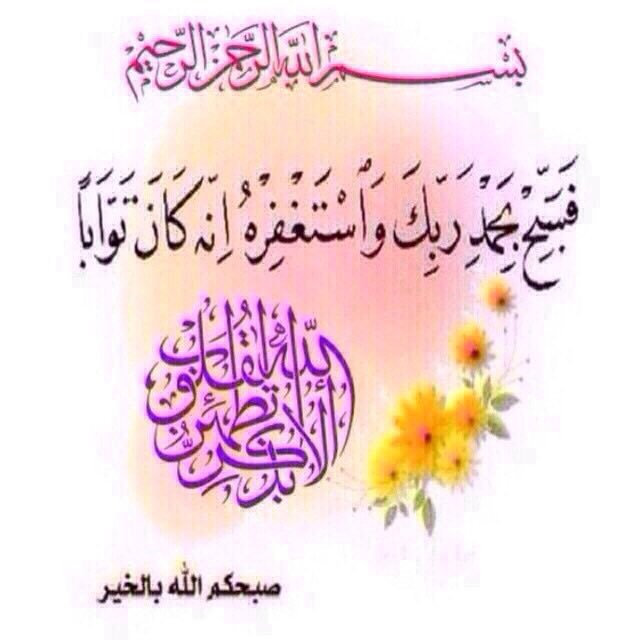 بسم الله الرحمن الرحيم
فَسَبِّحْ بِحَمْدِ رَبِّكَ وَاسْتَغْفِرْهُ إِنَّهُ كَانَ تَوَّابًا
ألا بذكر الله تطمئن القلوب
صبحكم الله بالخير